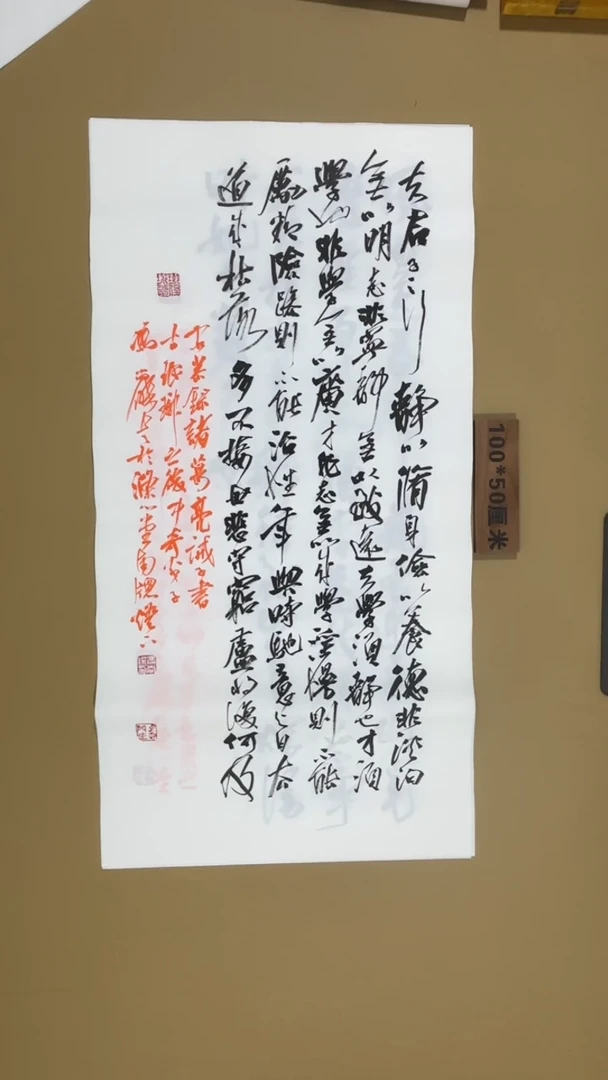 夫君子之行靜以脩身儉以養德非淡泊
無以明志非寧靜無以致遠夫學須靜也才須
學也非學無以廣才非志無以成學淫慢則不能
勵精險躁則不能治性年與時馳意與日去
遂成枯落多不接世悲守窮廬將復何及
錄諸葛亮誡子書
古琅琊
於滌心堂南牕燈下
100*50厘米